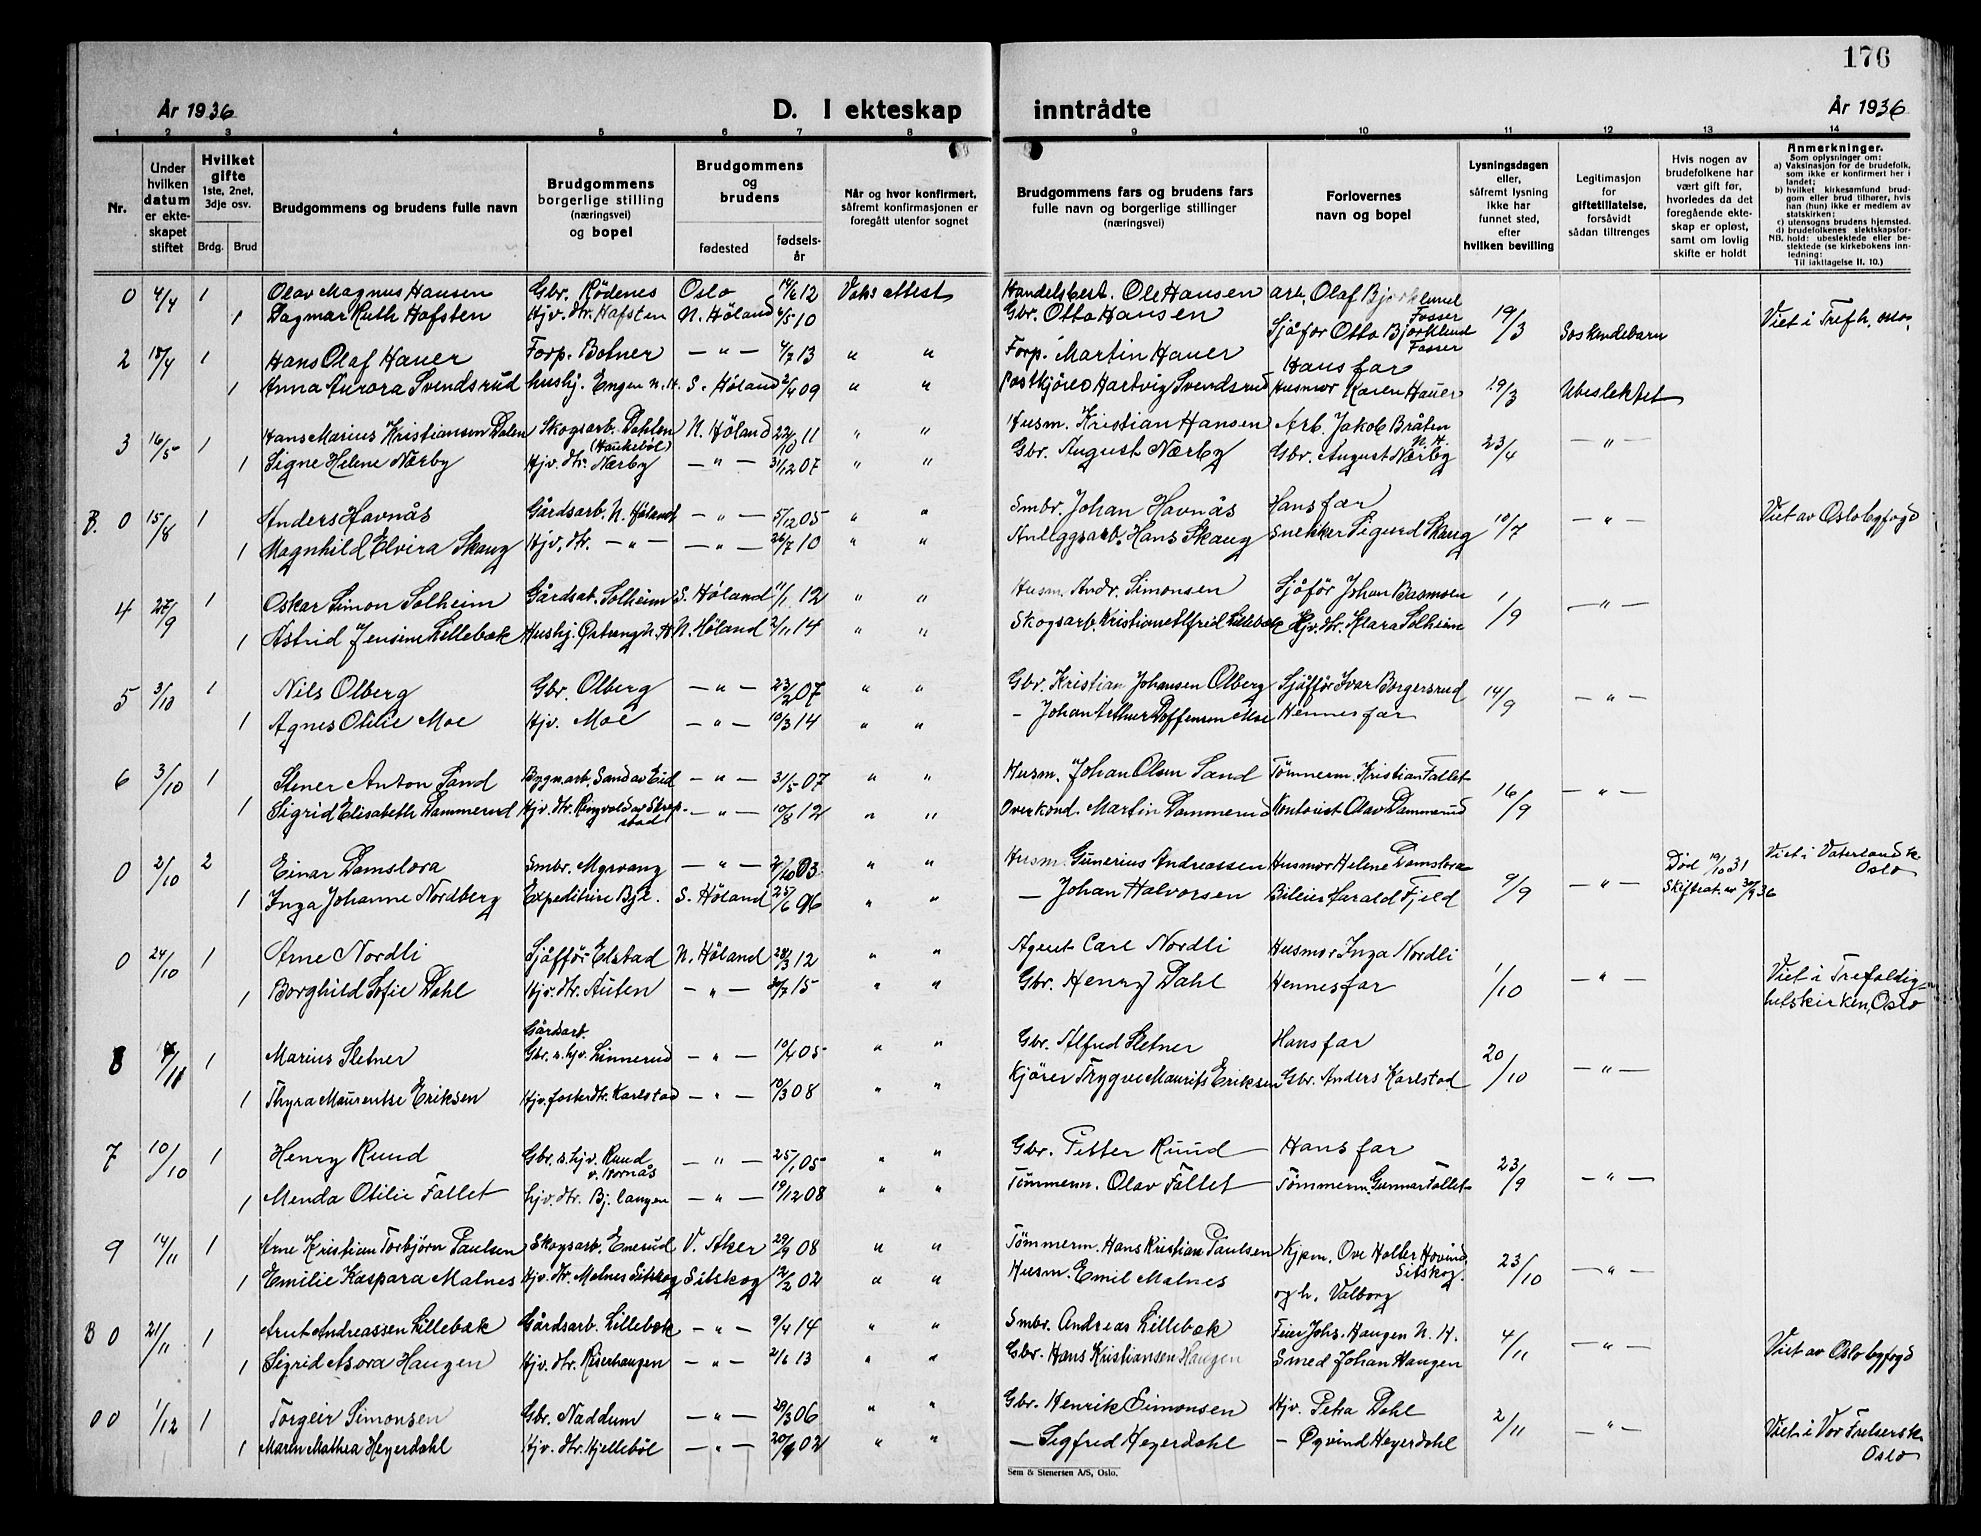 176
År 1936 D. I ekteskap inntrådte År 1936
1 2 3 4 5 6 7 8 9 10 11 12 13 14
Nr.
Under hvilken datum er ekte- skapet stiftet
Hvilket gifte 1ste, 2net, 3dje osv. Brdg. Brud
Brudgommens og brudens fulle navn
Brudgommens borgerlige stilling (næringsvei) og bopel
Brudgommens og brudens fødested fødsels- år
Når og hvor konfirmert, såfremt konfirmasjonen er foregått utenfor sognet
Brudgommens fars og brudens fars fulle navn og borgerlige stillinger (næringsvei)
Forlovernes navn og bopel
Lysningsdagen eller, såfremt lysning ikke har funnet sted, efter hvilken bevilling
Legitimasjon for giftetillatelse, forsåvidt sådan tiltrenges
Hvis nogen av brudefolkene har vært gift før, hvorledes da det foregående ekte- skap er opløst, samt om lovlig skifte er holdt
Anmerkninger.
Som oplysninger om:
a) Vaksinasjon for de brudefolk, som ikke er konfirmert her i landet;
b) hvilket kirkesamfund brud- gom eller brud tilhører, hvis han (hun) ikke er medlem av statskirken;
c) utensogns brudens hjemsted.
d) brudefolkenes slektskapsfor- hold: ubeslektede eller be- slektede (se kirkebokens inn- ledning:
NB. Til iakttagelse II. 10.)
0 4/4 1 Olav Magnus Hansen Gbr. Rödenes Oslo 14/6 12 Vaks attest Handelsbest. Ole Hansen arb. Olaf Bjørklund Fosser
1 Dagmar Ruth Hafsten Hjv. dtr. Hafsten N. Höland 6/5 10 Gbr. Otto Hansen Sjåfør Otto Bjørklund Fosser 19/3 Søskendebarn Viet i Trefh, Oslo,
2 18/4 1 Hans Olaf Hauer Forp. Botner — " — 4/7 13 " " Forp. Martin Hauer Hans far
1 Anna Aurora Svendsrud hushj. Engen N. H. S. Höland 2/4 09 " " Postkjörer Hartvig Svendsrud Husmor Karen Hauer 19/3 Ubeslektet
3 16/5 1 Hans Marius Kristiansen Dalen Skogsarb. Dahlen (Haukeböl) N. Höland 22/10 11 " " Husm. Kristian Hansen Arb. Jakob Bråten N. H.
1 Signe Helene Nærby Hjv. dtr. Nærby — " — 31/12 07 " " Gbr. August Nærby Gbr. August Nærby 23/4 — " —
B. 0 15/8 1 Anders Havnås Gårdsarb. N. Höland — " — 5/12 05 " " Smbr. Johan Havnås Hans far Viet av Oslo byfogd
1 Magnhild Elvira Skaug Hjv, dtr. — " — — " — 26/7 10 " " Anleggsarb. Hans Skaug Snekker Sigurd Skaug 10/7 — " —
4 27/9 1 Oskar Simon Solheim Gårdsab. Solheim S. Höland 11/1 12 " " Husm. Andr. Simonsen Sjåför Johan Basmoen
1 Astrid Jensine Lillebæk Hushj. Östvang N. H. N. Höland 2/11 14 " " Skogsarb. Kristian Alfred Lillebæk Hjv. dtr. Klara Solheim 1/9 — " —
5 3/10 1 Nils Olberg Gbr. Olberg — " — 23/2 07 " " Gbr. Kristian Johansen Olberg Sjåför Ivar Borgersrud
1 Agnes Otilie Moe Hjv. Moe — " — 10/3 14 " " — Johan Arthur Doffensen Moe Hennes far 14/9 — " —
6 3/10 1 Stener Anton Sand Bygnarb. Sand av Eid — " — 31/5 07 " " Husm. Johan Olsen Sand Tömmerm. Kristian Fallet
1 Sigrid Elisabeth Dammerud Hjv. dtr. Ringvold av Skrepstad — " — 10/8 12 " " Overkond. Martin Dammerud Kontorist Olav Dammerud 16/9 — " —
0 2/10 2 Einar Damslora Smbr. Myrvang — " — 03 " " Husm. Gunerius Andreassen Husmor Helene Damslora Död 19/10 31 Viet i Vaterland k. Oslo
1 Inga Johanne Nordberg Expeditrise S. Höland 25/6 96 " " — Johan Halvorsen Bileier Harald Fjeld 9/9 — " — Skifteat. av 30/9 36
0 24/10 1 Arne Nordli Sjåfför Elstad N. Höland 28/3 12 " " Agent Carl Nordli Husmor Inga Nordli
1 Borghild Sofie Dahl Hjv. dtr. Auten — " — 15 " " Gbr. Henry Dahl Hennes far 1/10 — " — Viet i Trefoldig- hetskirken, Oslo
8 1 Marius Sletner Gårdsarb. Gbr. s. hjv. Linnerud — " — 10/4 05 " " Gbr. Alfred Sletner Hans far
1 Thyra Maurentse Eriksen Hjv. fosterdtr. Karlstad — " — 10/3 08 " " Kjörer Trygve Maurits Eriksen Gbr. Anders Karlstad 20/10 — " —
7 10/10 1 Henry Ruud Gbr. s. hjv. Ruud v. Bornås — " — 25/1 05 " " Gbr. Petter Ruud Hans far
1 Menda Otilie Fallet hjv. dtr. Bj. langen — " — 19/12 08 " " Tömmerm. Olav Fallet Tömmerm. Gunnar Fallet 23/9 — " —
9 14/11 1 Arne Kristian Torbjørn Paulsen Skogsarb. Enerud V. Aker 29/9 08 " " Tömmerm. Hans Kristian Paulsen Kjpm. Ove Holter Hovind, Sitskog.
1 Emilie Kaspara Malnes Hjv. dtr. Malnes Sitskog Sitskog 12/2 02 " " Husm. Emil Malnes og h. Valborg 23/10 — " —
B 0 21/11 1 Arnt Andreassen Lillebæk Gårdsarb. Lillebæk — " — 9/4 14 " " Smbr. Andreas Lillebæk Feier Johs. Haugen N. H.
1 Sigrid Asora Haugen Hjv. dtr. Riserhaugen — " — 2/6 13 " " Gbr. Hans Kristiansen Haugen Smed Johan Haugen 4/11 — " — Viet av Oslo byfogd
00 1/12 1 Torgeir Simonsen Gbr. Naddum — " — 29/3 06 " " Gbr. Henrik Simonsen Hjv. Petra Dahl
1 Maren Mathea Heyerdahl Hjv. dtr. Hjelleböl — " — 02 " " — Sigfred Heyerdahl — Øyvind Heyerdahl 2/11 — " — Viet i Vor Frelsers k. Oslo
Sem & Stenersen A/S, Oslo.